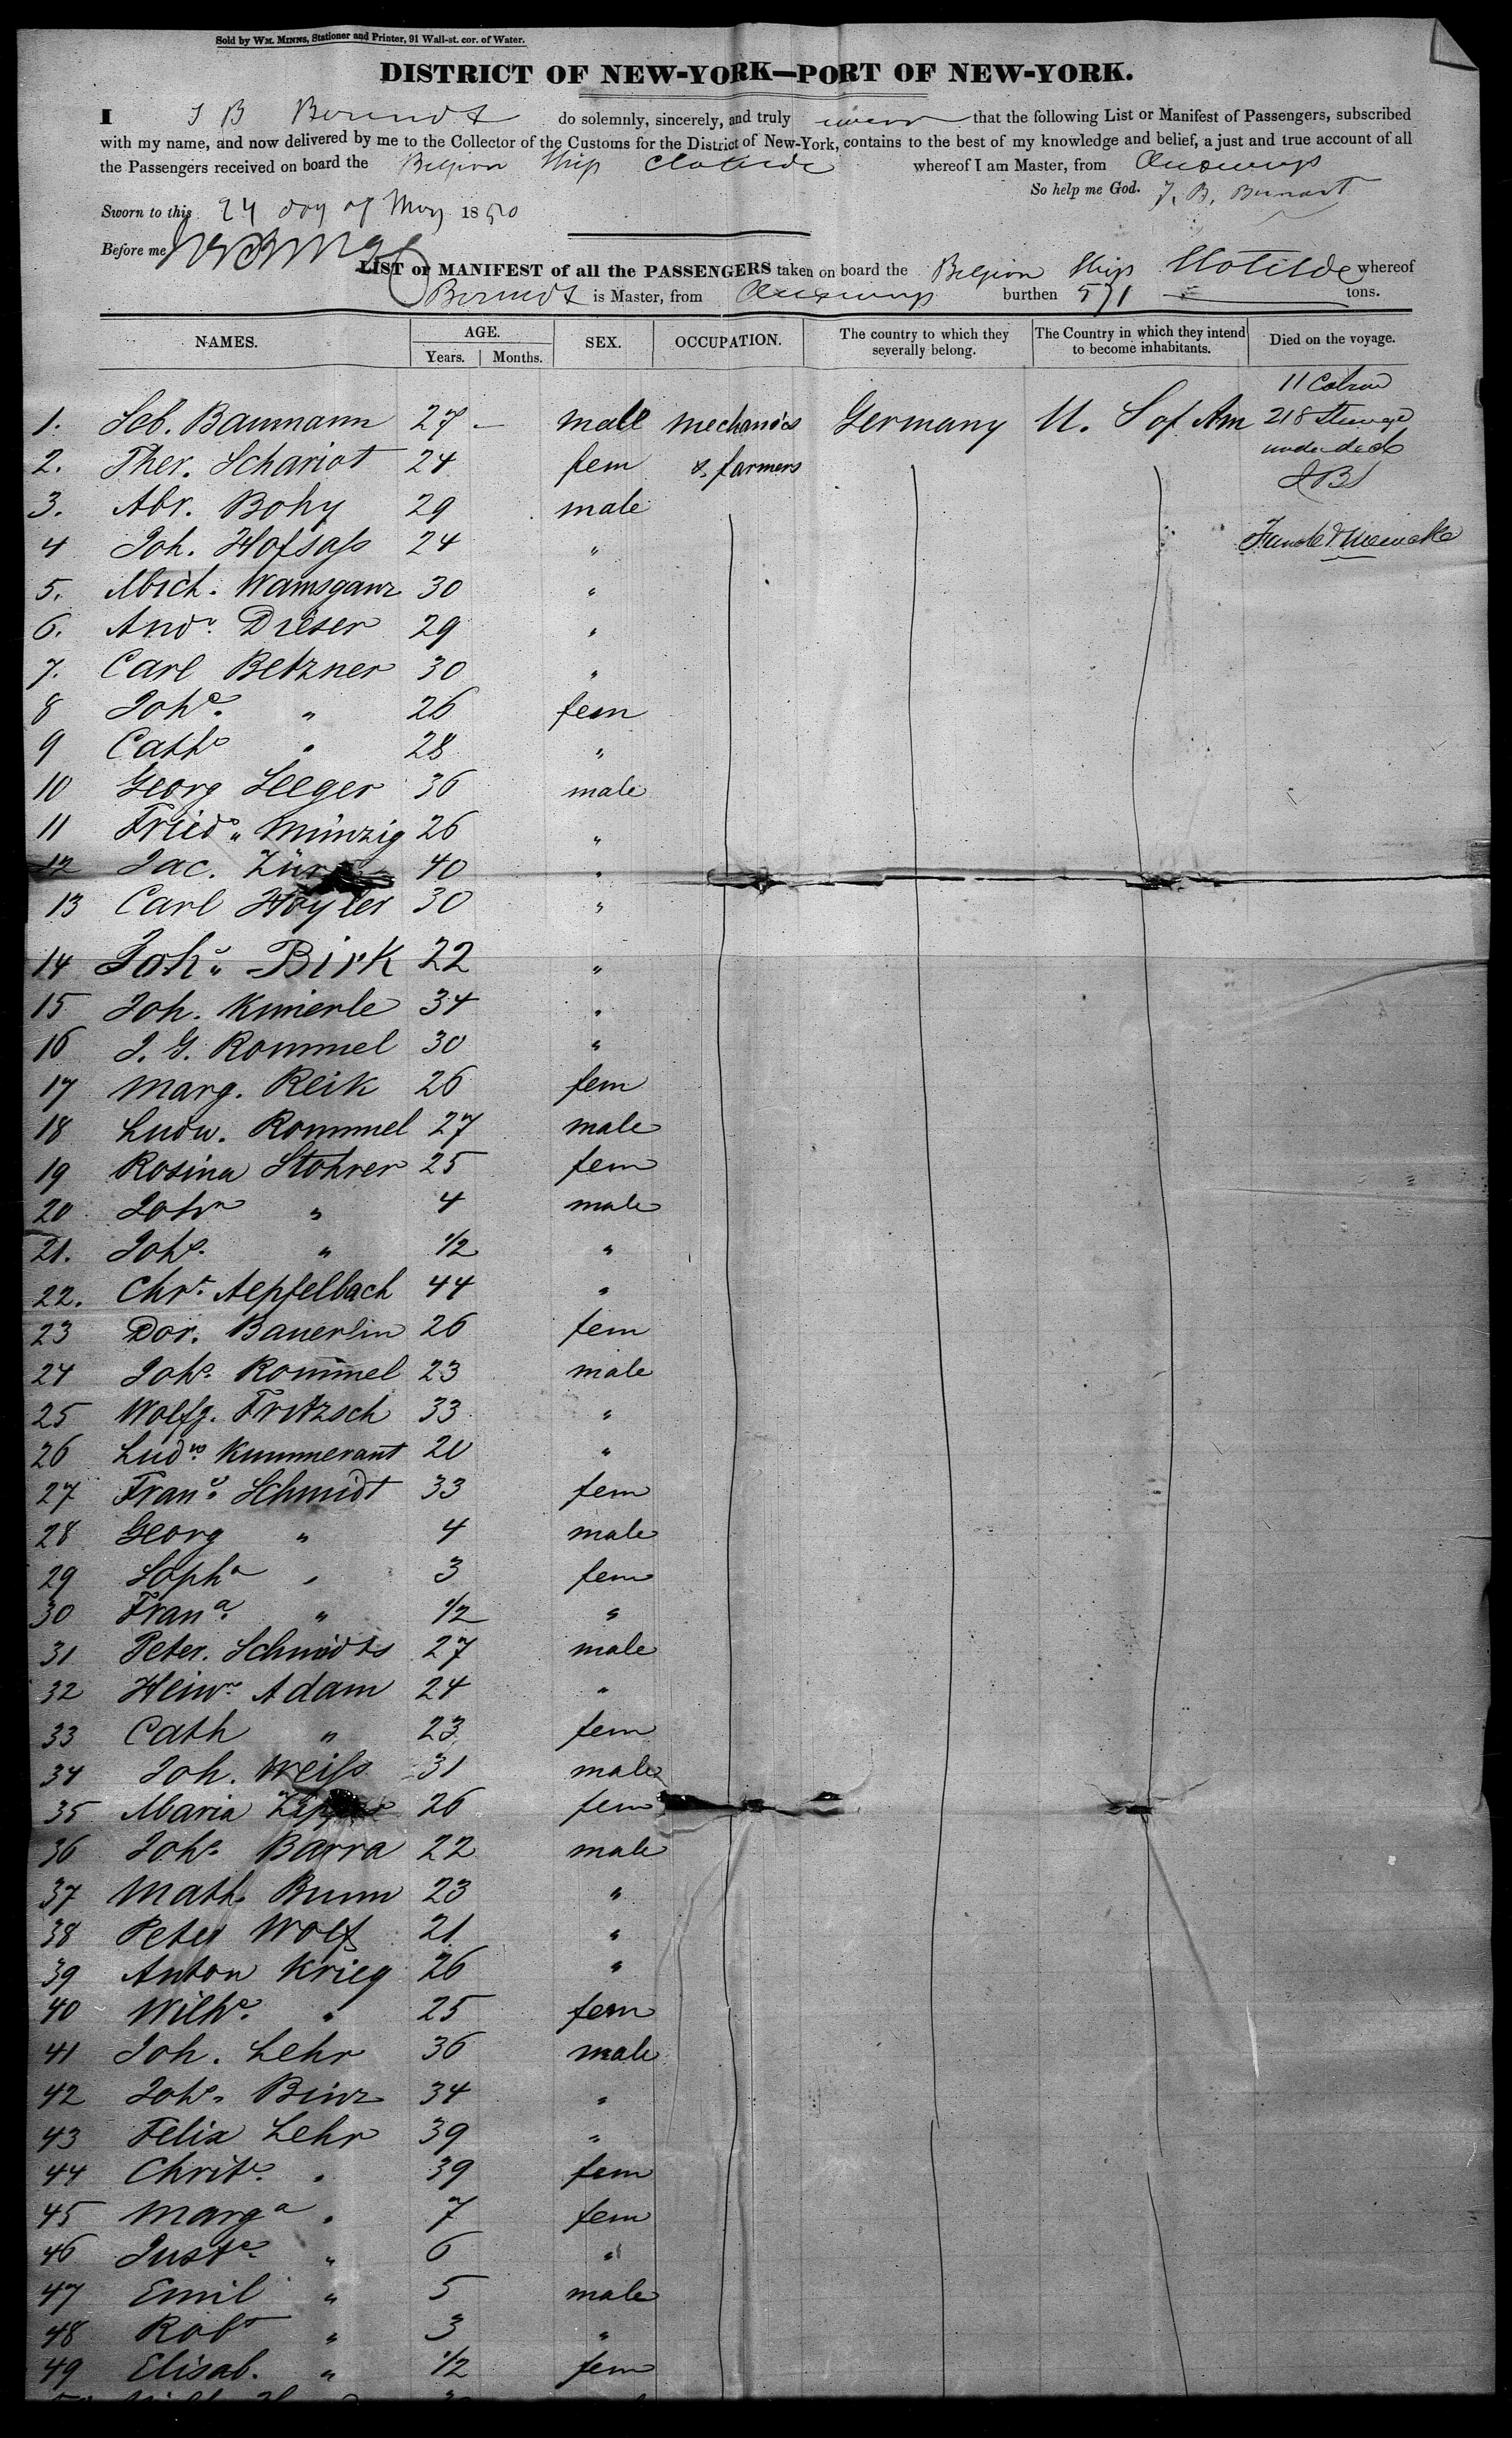 Sold by WM. MINNS, Stationer and Printer, 91 Wall-st. cor. of Water.
DISTRICT OF NEW-YORK—PORT OF NEW-YORK.
I J B Berindt do solemnly, sincerely, and truly swear that the following List or Manifest of Passengers, subscribed
with my name, and now delivered by me to the Collector of the Customs for the District of New-York, contains to the best of my knowledge and belief, a just and true account of all
the Passengers received on board the Belgian Ship Clotilde whereof I am Master, from Antwerp
So help me God. J. B. Berindt
Sworn to this 24 day of May 1850
Before me
LIST or MANIFEST of all the PASSENGERS taken on board the Belgian Ship Clotilde whereof
Berindt is Master, from Antwerp burthen 571 tons.
NAMES. AGE. Years. Months. SEX. OCCUPATION. The country to which they severally belong. The Country in which they intend to become inhabitants. Died on the voyage.
11 Cabin
1. Seb. Baumann 27 – male mechanics Germany U. S of Am 218 Steerage
under deck
2. Ther. Schariot 24 fem & farmers
JB
3. Abr. Bohy 29 male
4 Joh. Hofsass 24 "
5. Mich. Wamsganz 30 "
6. Andr. Dieser 29 "
7. Carl Betzner 30 "
8 Johe. " 26 fem
9 Cathe " 28 "
10 Georg Seeger 36 male
11 Friedr. Münzig 26 "
12 Jac. 40 "
13 Carl Hoyler 30 "
14 Johs. Birk 22 "
15 Joh. Kumerle 34 "
16 J. G. Rommel 30 "
17 Marg. Reik 26 fem
18 Ludw. Rommel 27 male
19 Rosina Stohrer 25 fem
20 John " 4 male
21. Johs. " 1/2 "
22. Chrt. Aepfelbach 44 "
23 Dor. Bauerlin 26 fem
24 Johs. Rommel 23 male
25 Wolfg. Fritzsch 33 "
26 Ludw. Kummerant 20 "
27 Frane. Schmidt 33 fem
28 Georg " 4 male
29 Sopha " 3 fem
30 Frana. " 1/2 "
31 Peter. Schmidts 27 male
32 Heinr. Adam 24 "
33 Cath " 23 fem
34 Joh. Weiss 31 male
35 Maria 26 fem
36 Johs. Barra 22 male
37 Math. Bunn 23 "
38 Peter Wolf 21 "
39 Anton Krieg 26 "
40 Wilhe. " 25 fem
41 Joh. Lehr 36 male
42 Johs. Binz 34 "
43 Felix Lehr 39 "
44 Christe. " 39 fem
45 Marga " 7 fem
46 Juste. " 6 "
47 Emil " 5 male
48 Robt " 3 "
49 Elisab. " 1/2 fem